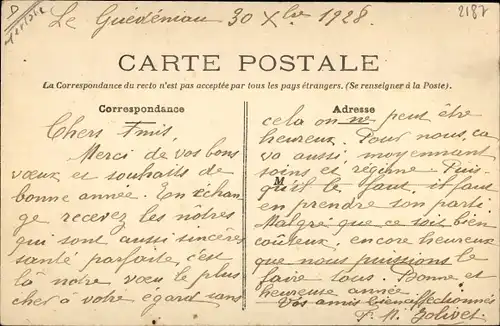 Le Guédéniau 30 Xbre 1928.
2187
CARTE POSTALE
La Correspondance du recto n'est pas acceptée par tous les pays étrangers. (Se renseigner à la Poste).
Correspondance
Chers Amis,
Merci de vos bons
vœux et souhaits de
bonne année. En échan
ge recevez les nôtres
qui sont aussi sincères
santé parfaite, c'est
là notre vœu le plus
cher à votre égard sans
Adresse
cela on ne peut être
heureux. Pour nous, ça
va aussi, moyennant
soins et régime. Puis-
M
qu'il le faut, il faut
en prendre son parti
Malgré que ce soit bien
coûteux, encore heureux
que nous puissions le
faire tous. Bonne et
heureuse année.
Vos amis bien affectionnés
F. M. Jolivet.